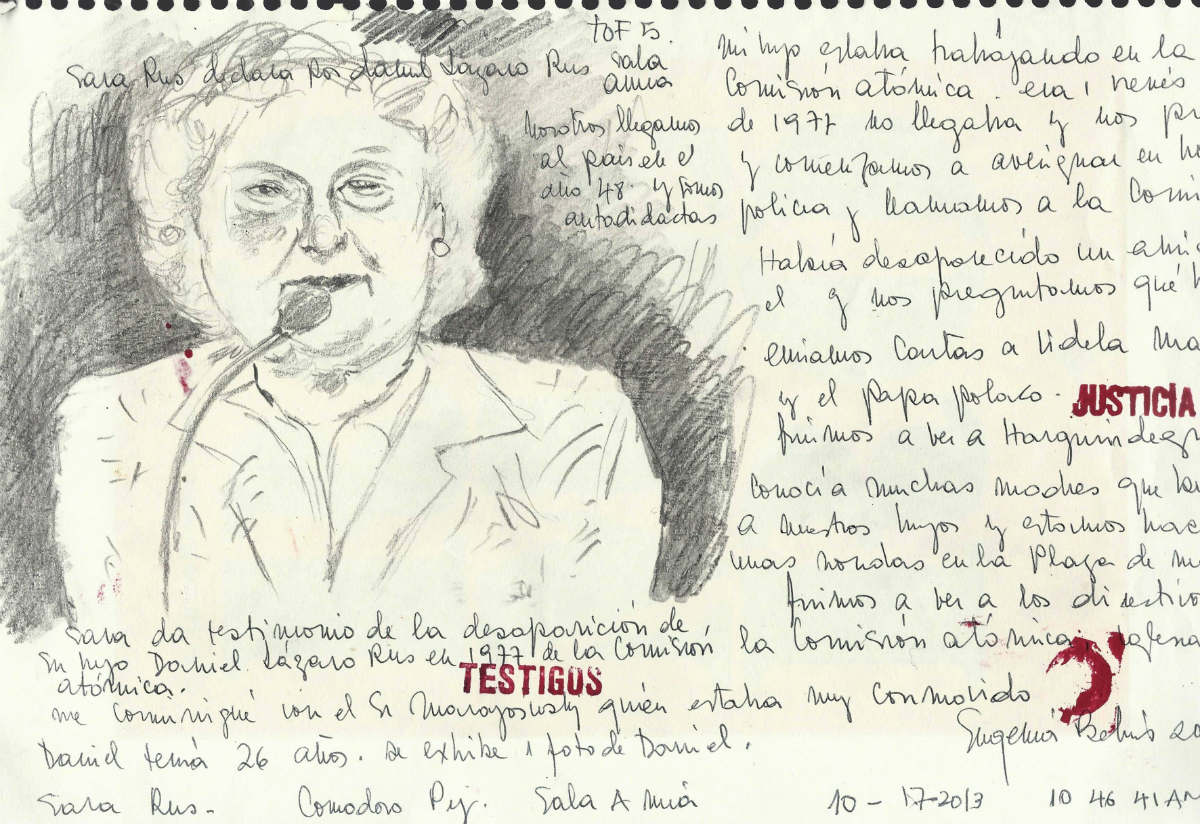 TOF 5.
Sala
AMIA
Sara Rus declara por Daniel Lázaro Rus
nosotros llegamos
al país en el
año 48. y somos
autodidactas
mi hijo estaba trabajando en la
Comisión atómica. era
de 1977 no llegaba y nos
y comenzamos a averiguar en
policía y llamamos a la
Había desaparecido un
el y nos preguntamos qué
enviamos cartas a Videla
y el papa polaco.
JUSTICIA
fuimos a ver a
Conocía muchas madres que
a nuestros hijos y estamos
unas rondas en la Plaza de
fuimos a ver a los
la Comisión atómica,
Sara da testimonio de la desaparición de
su hijo Daniel Lázaro Rus en 1977 de la Comisión
atómica.
TESTIGOS
me comuniqué con el Sr quién estaba muy conmovido
Daniel tenía 26 años. se exhibe 1 foto de Daniel.
Eugenia Bekeris
Sara Rus- Comodoro Py. Sala AMIA 10-17-2013 10 46 41 AM